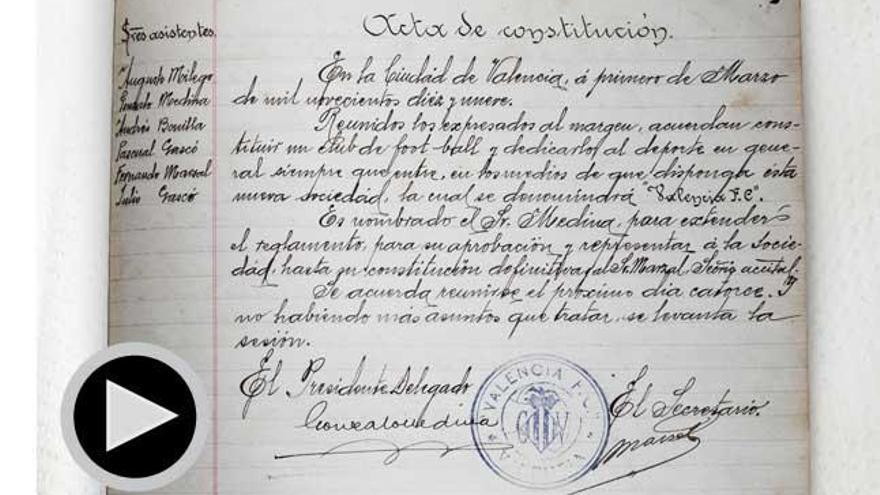 Sres asistentes.
Augusto Milego
Gonzalo Medina
Andrés Bonilla
Pascual Gascó
Fernando Marzal
Julio Gascó
Acta de constitución.
En la Ciudad de Valencia, á primero de Marzo
de mil novecientos diez y nueve.
Reunidos los expresados al margen, acuerdan cons-
tituir un club de foot-ball y dedicarlo, al deporte en gene-
ral siempre que entre, en los medios de que disponga ésta
nueva sociedad, la cual se denominará "Valencia F.C".
Es nombrado el Sr. Medina, para extender
el reglamento, para su aprobación y representar á la Socie-
dad, hasta su constitución definitiva, al Sr. Marzal
Se acuerda reunirse el próximo dia catorce. Y
no habiendo más asuntos que tratar, se levanta la
sesión.
El Presidente Delegado
Gonzalo Medina
VALENCIA F.C.
VALENCIA
El Secretario.
Marzal